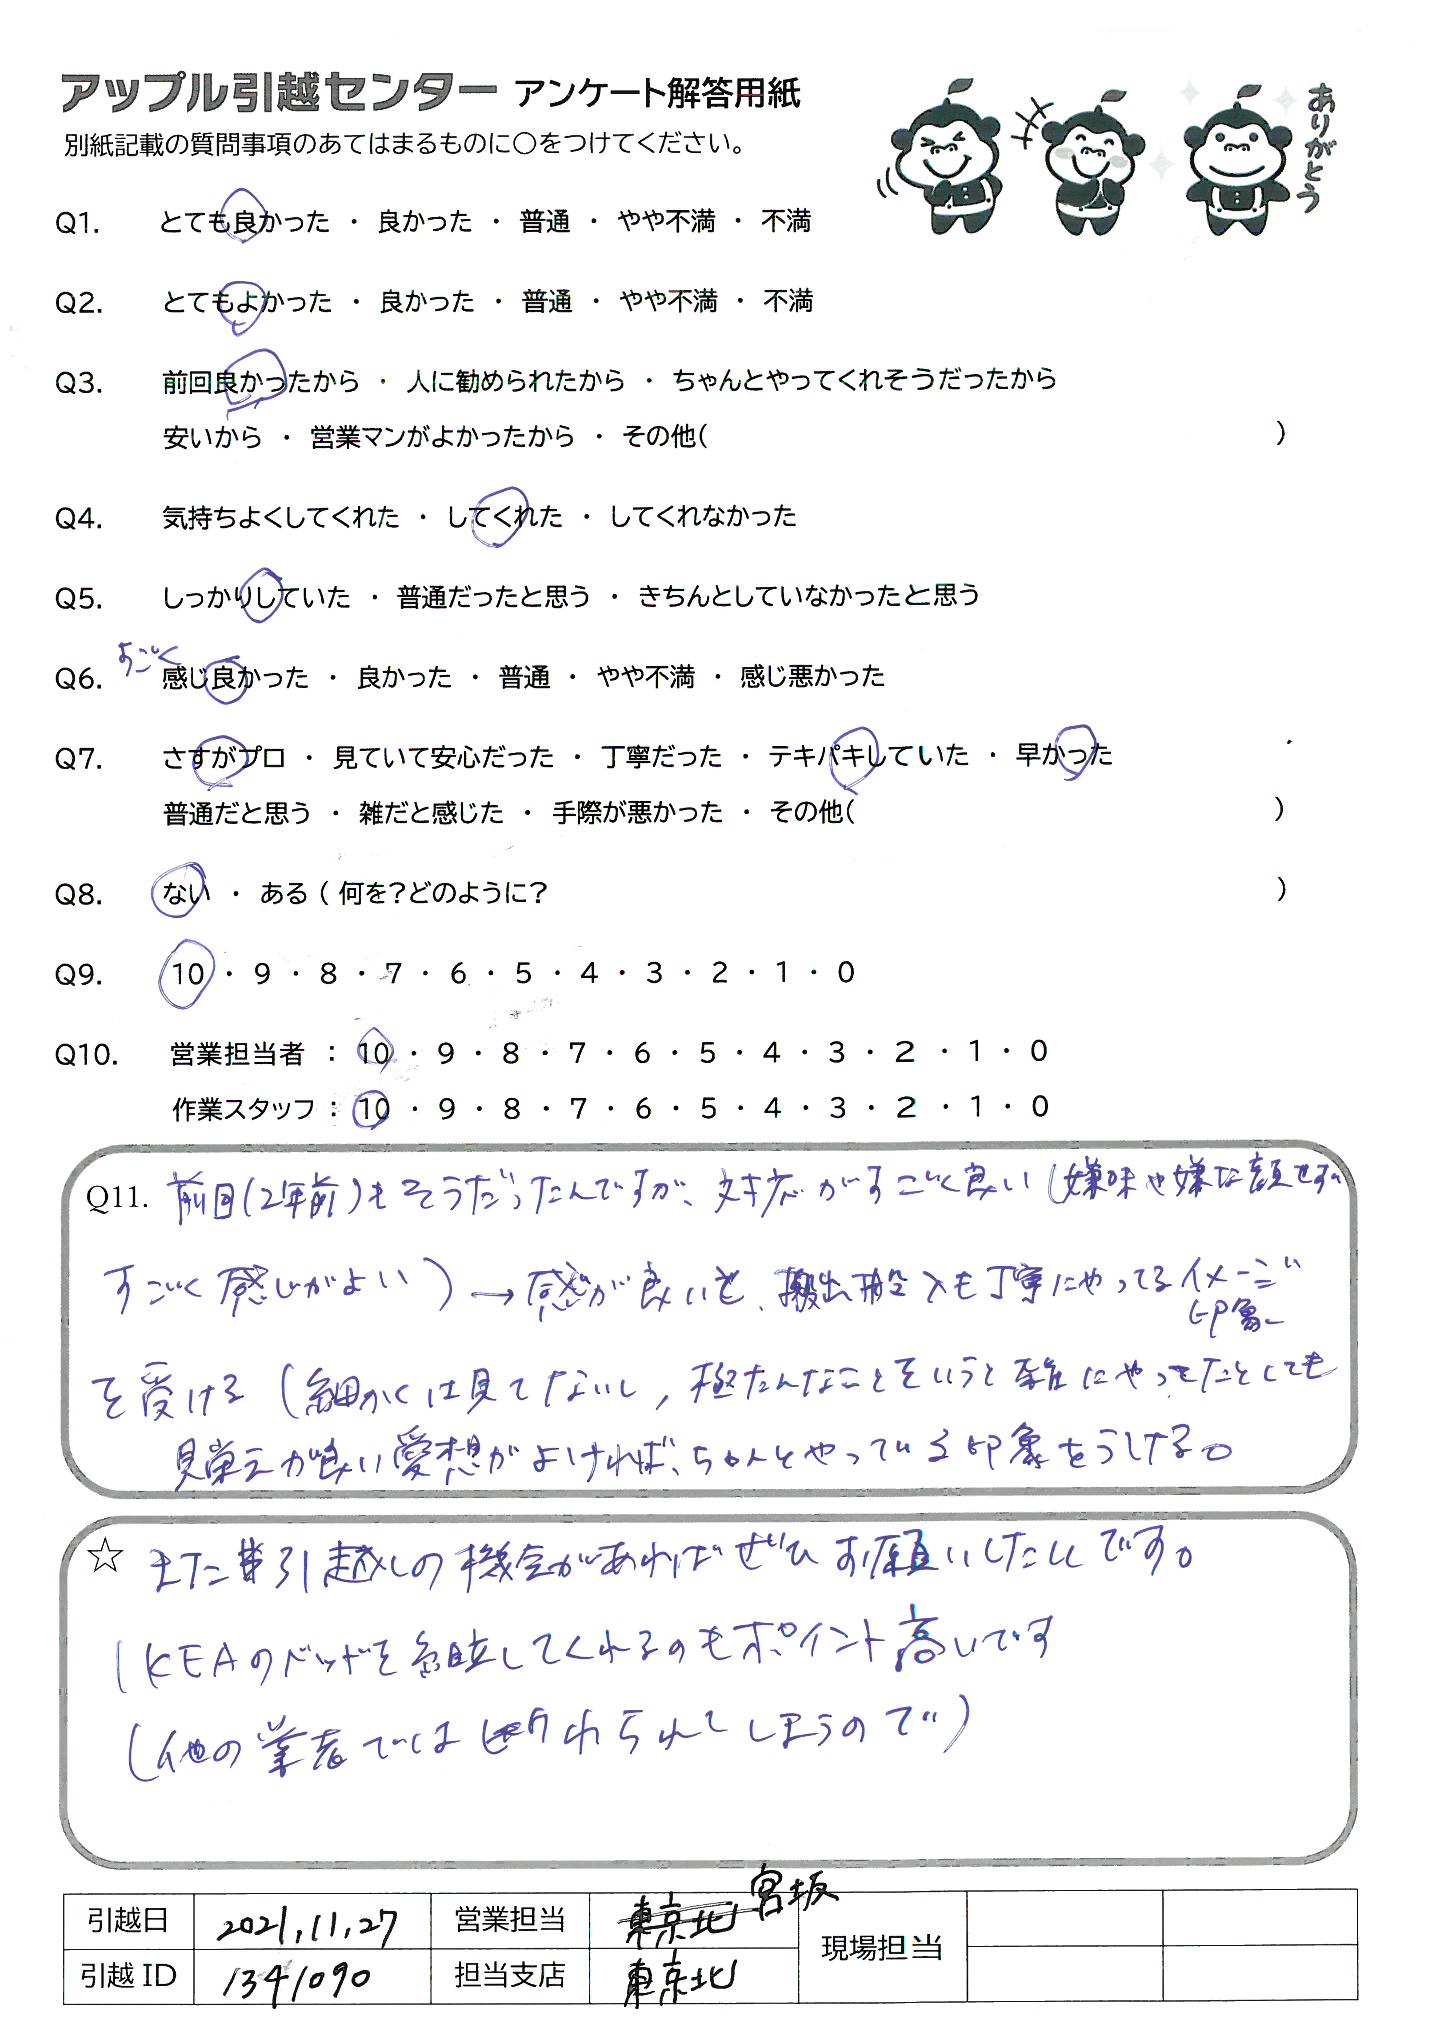 アップル引越センター アンケート解答用紙
別紙記載の質問事項のあてはまるものに○をつけてください。
ありがとう
Q1. とても良かった ・ 良かった ・ 普通 ・ やや不満 ・ 不満
Q2. とてもよかった ・ 良かった ・ 普通 ・ やや不満 ・ 不満
Q3. 前回良かったから ・ 人に勧められたから ・ ちゃんとやってくれそうだったから
安いから ・ 営業マンがよかったから ・ その他( )
Q4. 気持ちよくしてくれた ・ してくれた ・ してくれなかった
Q5. しっかりしていた ・ 普通だったと思う ・ きちんとしていなかったと思う
すごく
Q6. 感じ良かった ・ 良かった ・ 普通 ・ やや不満 ・ 感じ悪かった
Q7. さすがプロ ・ 見ていて安心だった ・ 丁寧だった ・ テキパキしていた ・ 早かった
普通だと思う ・ 雑だと感じた ・ 手際が悪かった ・ その他( )
Q8. ない ・ ある ( 何を？どのように？ )
Q9. 10 ・ 9 ・ 8 ・ 7 ・ 6 ・ 5 ・ 4 ・ 3 ・ 2 ・ 1 ・ 0
Q10. 営業担当者 ： 10 ・ 9 ・ 8 ・ 7 ・ 6 ・ 5 ・ 4 ・ 3 ・ 2 ・ 1 ・ 0
作業スタッフ ： 10 ・ 9 ・ 8 ・ 7 ・ 6 ・ 5 ・ 4 ・ 3 ・ 2 ・ 1 ・ 0
Q11. 前回(2年前)もそうだったんですが、対応がすごく良い(嫌味や嫌な顔せず、
すごく感じがよい)→感じが良いと、搬出搬入も丁寧にやってるイメージ
印象
を受ける(細かくは見てないし, 極たんなことをいうと雑にやってたとしても
見栄えが良い愛想がよければ、ちゃんとやっている印象をうける。
☆ また引越しの機会があればぜひお願いしたいです。
IKEAのベッドを組立してくれるのもポイント高いです
(他の業者では断わられてしまうので)
引越日 2021,11,27 営業担当 東京北 宮坂 現場担当
引越 ID 1341090 担当支店 東京北